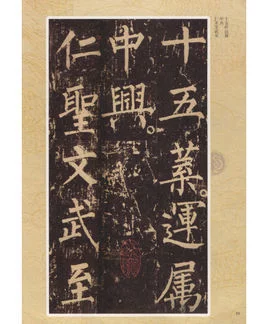 十五葉運属
中興。
仁聖文武至